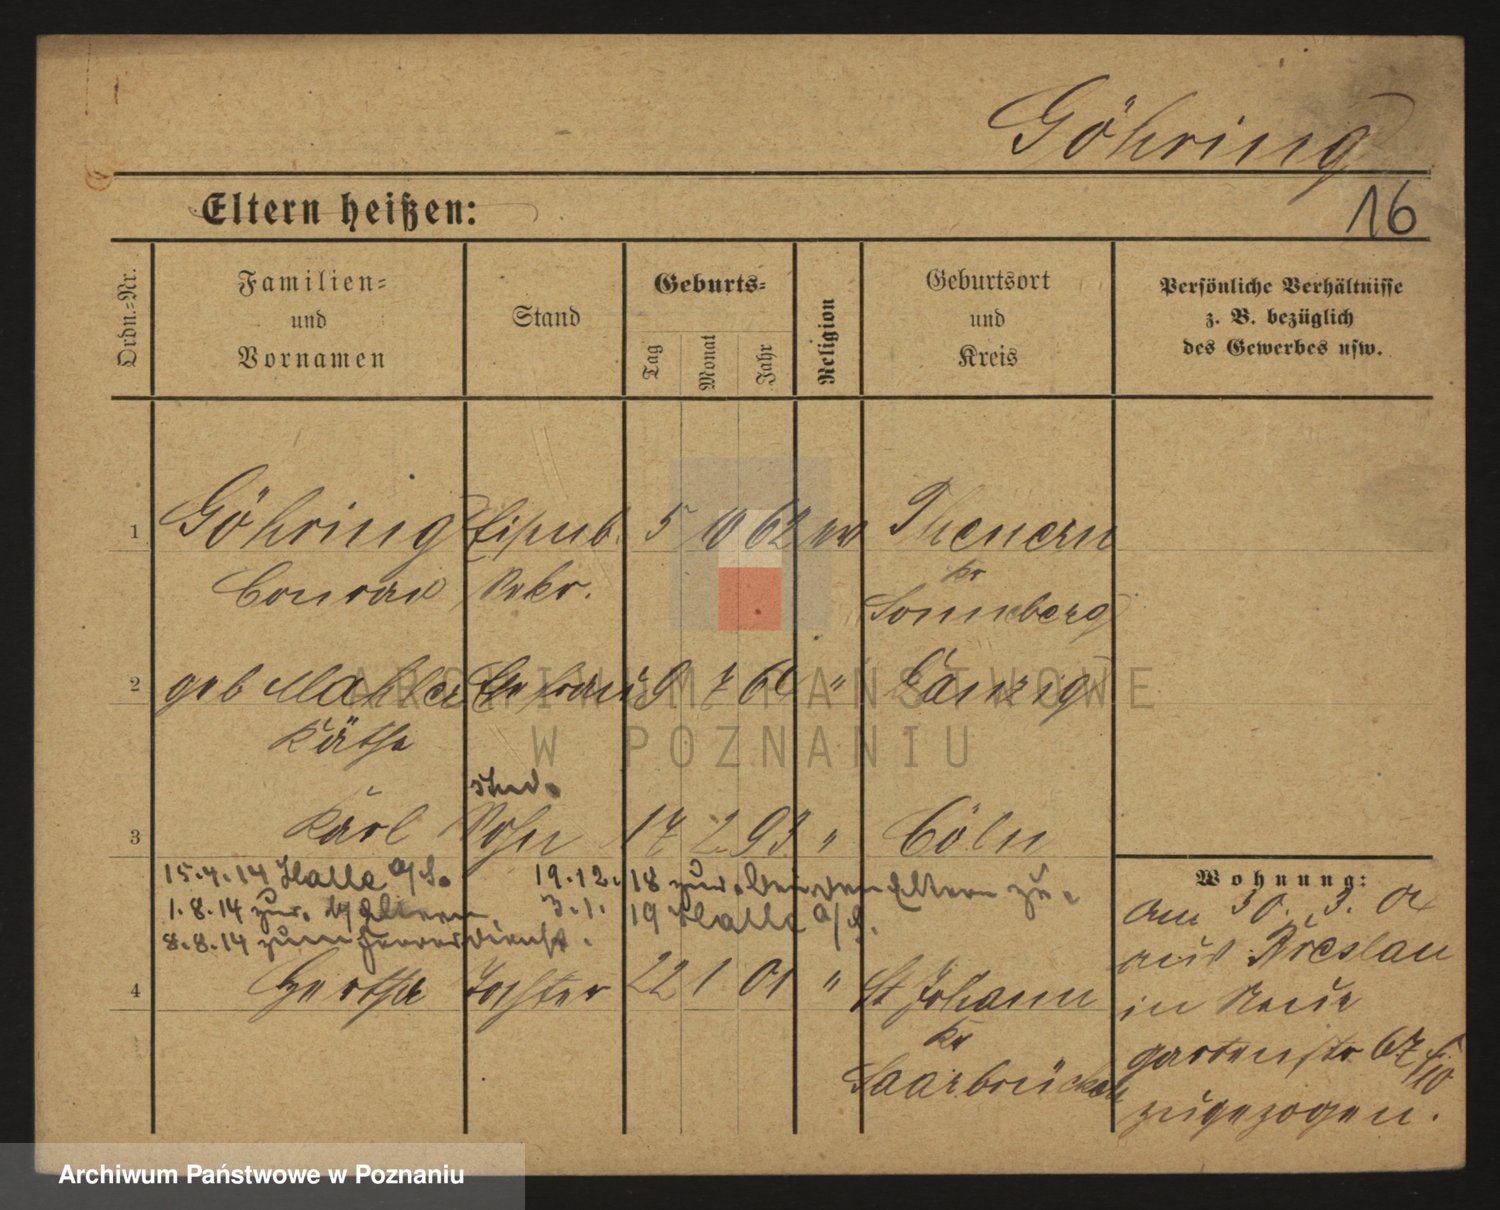 Göhring
Eltern heißen:
16
Ordn.=Nr.
Familien=
und
Vornamen
Stand
Geburts=
Tag
Monat
Jahr
Religion
Geburtsort
und
Kreis
Persönliche Verhältnisse
z. B. bezüglich
des Gewerbes usw.
1 Göhring Eisenb. 5 10 62 ev Theuern
Conrad Sekr. Kr
Sonneberg
2 geb Mahler Ehefrau 9 7 60 " Danzig
Käthe
stud.
3 Karl Sohn 17 2 93 " Cöln
15.4.14 Halle a/S. 19.12.18 zur. Eltern zu.
1.8.14 zur. Eltern. 3.1.19 Halle a/S.
8.8.14 zum Heeresdienst.
4 Hertha Tochter 22 1 01 " St Johann
Kr
Saarbrücken
Wohnung:
am 30. 3. 04
aus Breslau
in Neue
gartenstr 67
zugezogen.
ARCHIWUM PAŃSTWOWE
W POZNANIU
Archiwum Państwowe w Poznaniu